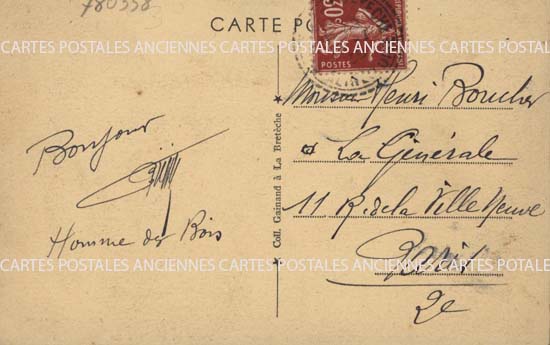 780558
CARTE PO
30c
POSTES
CARTES POSTALES ANCIENNES CARTES POSTALES ANCIENNES CARTES POSTALES
Bonjour
Homme des Bois
Coll. Gainand à La Bretèche
Monsieur Henri Boucher
La Générale
11 R. de la Ville Neuve
Paris
2e
CARTES POSTALES ANCIENNES CARTES POSTALES ANCIENNES CARTES POSTALES